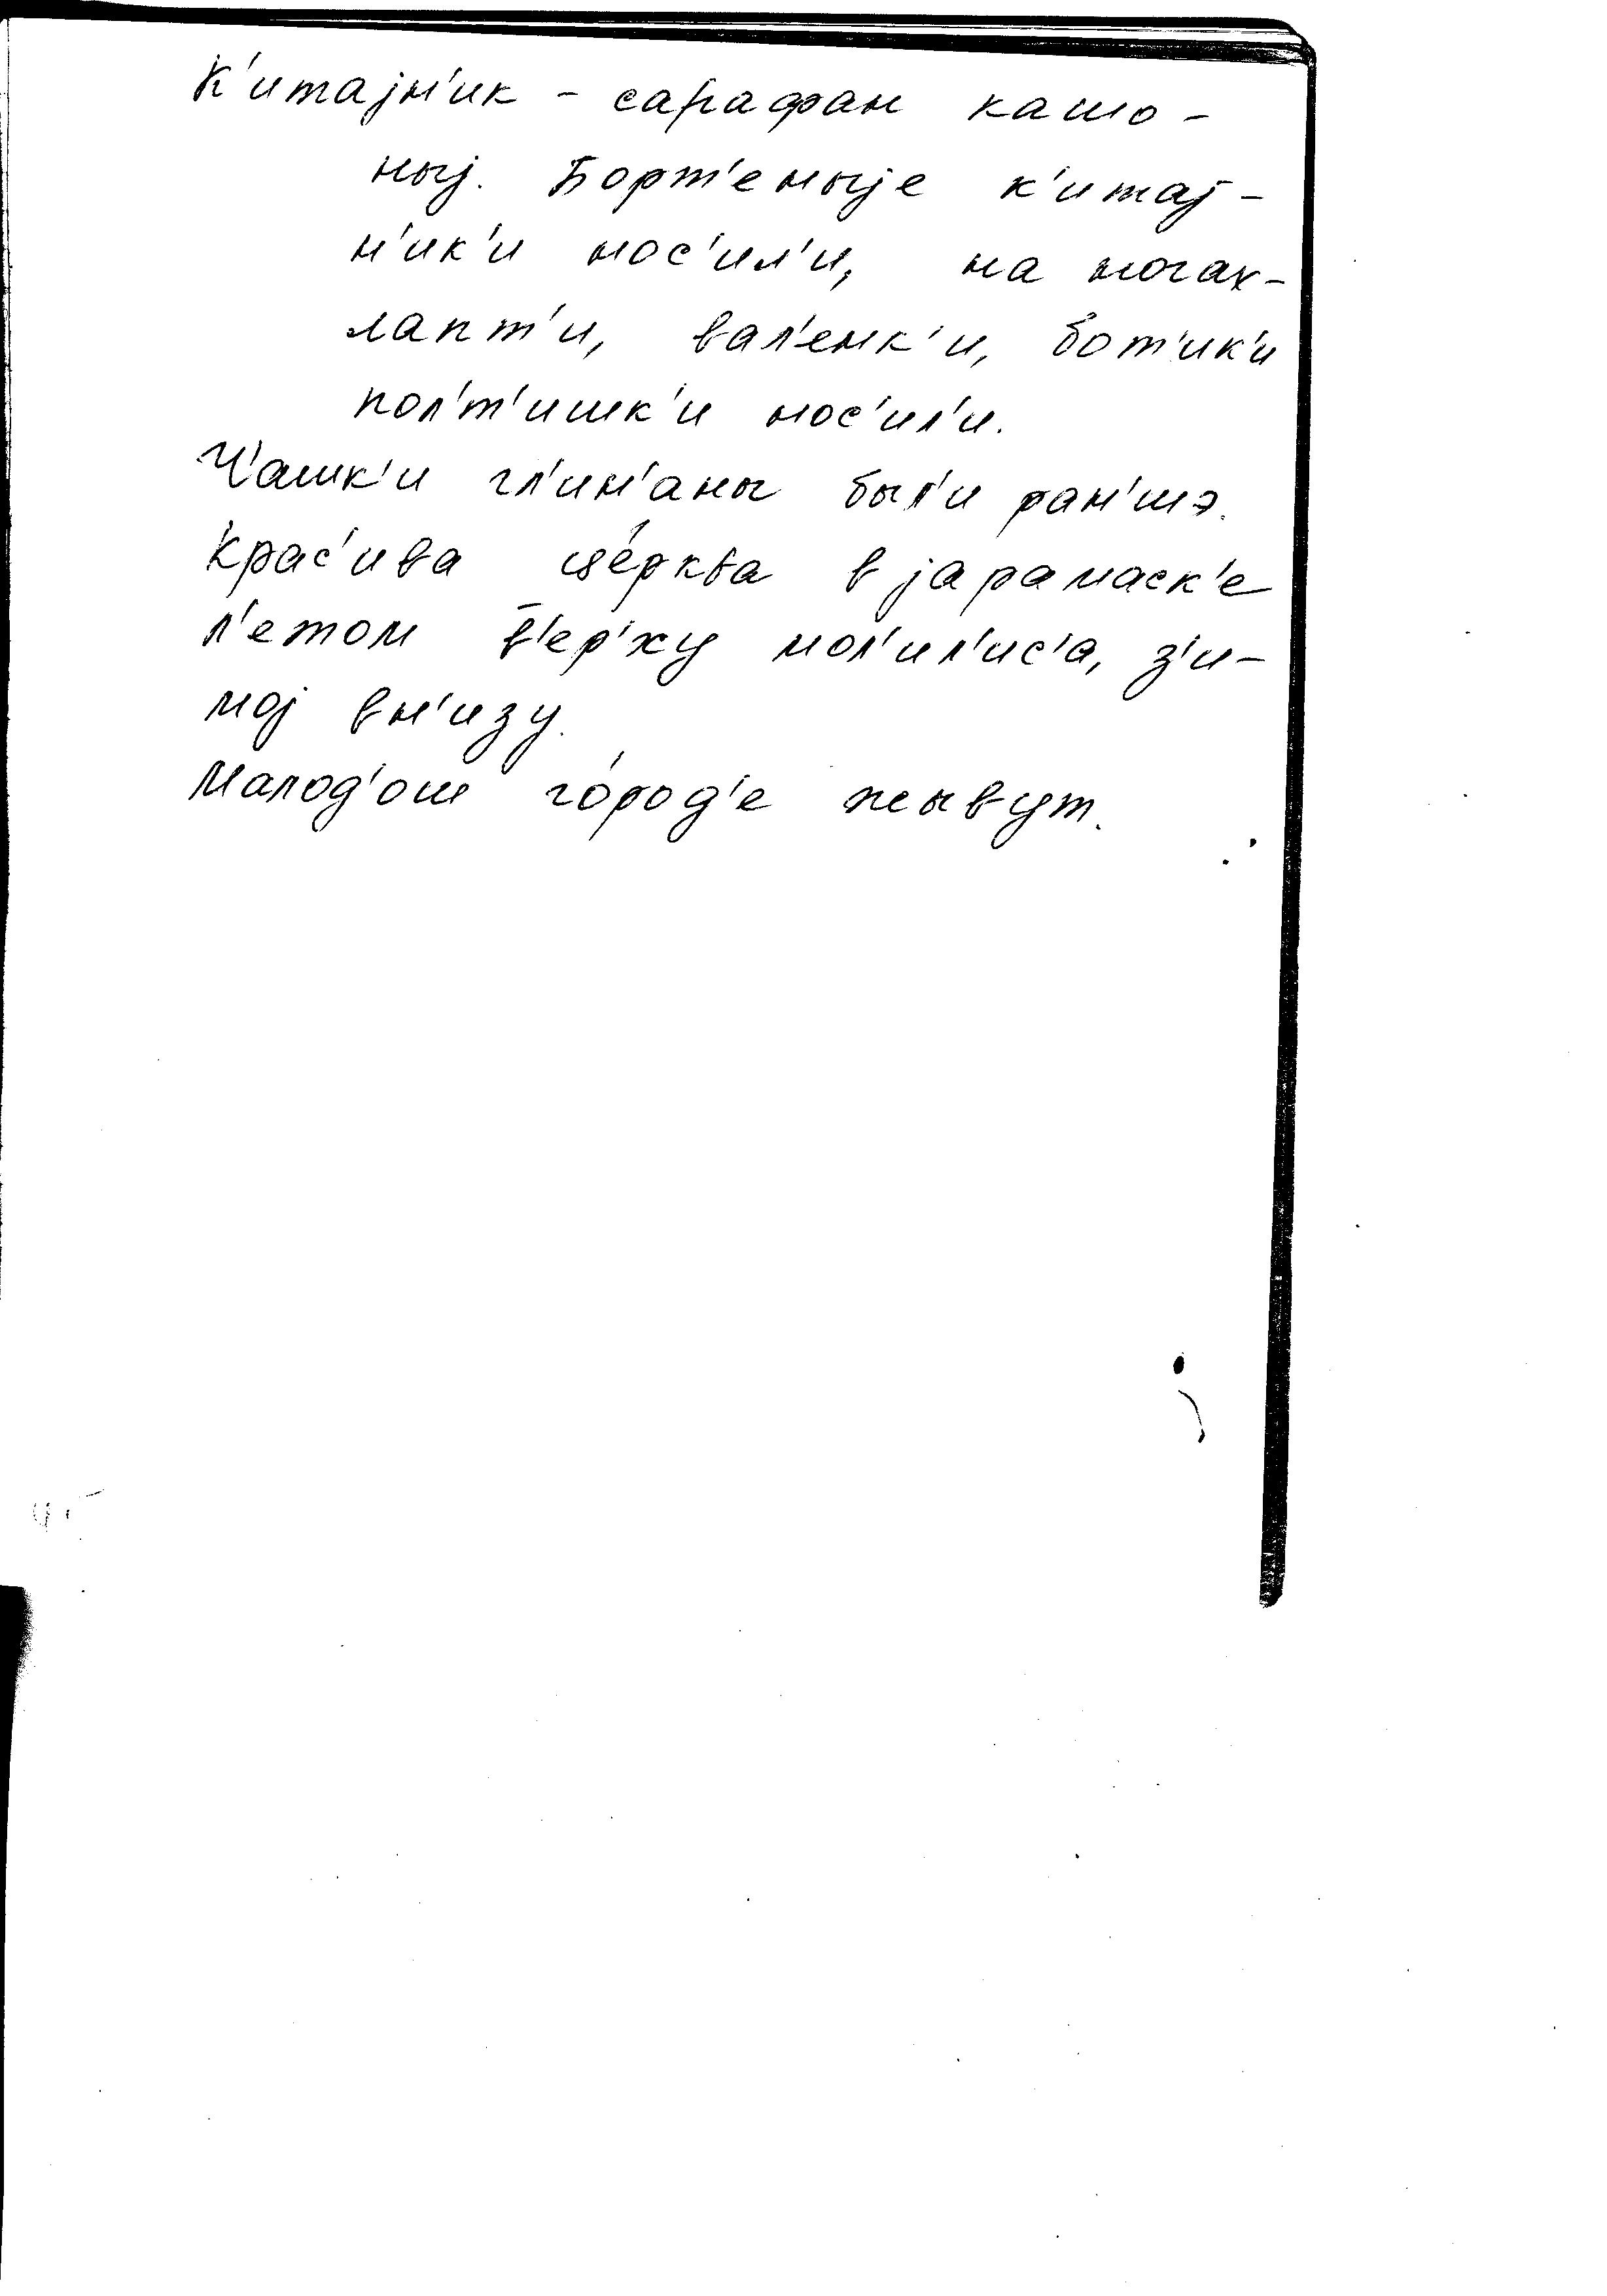 К'итаjн'ик - сарафан кашо-
ныj. Борт'еныjе к'итаj-
н'ик'и нос'ил'и, на ногах-
лапт'и, вал'енк'и, бот'ик'и
пол'т'ишк'и нос'ил'и.
Ч'ашк'и гл'ин'аны был'и ран'шэ.
Крас'ива це́рква в jарамаск'е
л'етом в̄'ер'ху мол'ил'ис'а, з'и-
моj вн'изу.
Малод'ош го́род'е жывут.